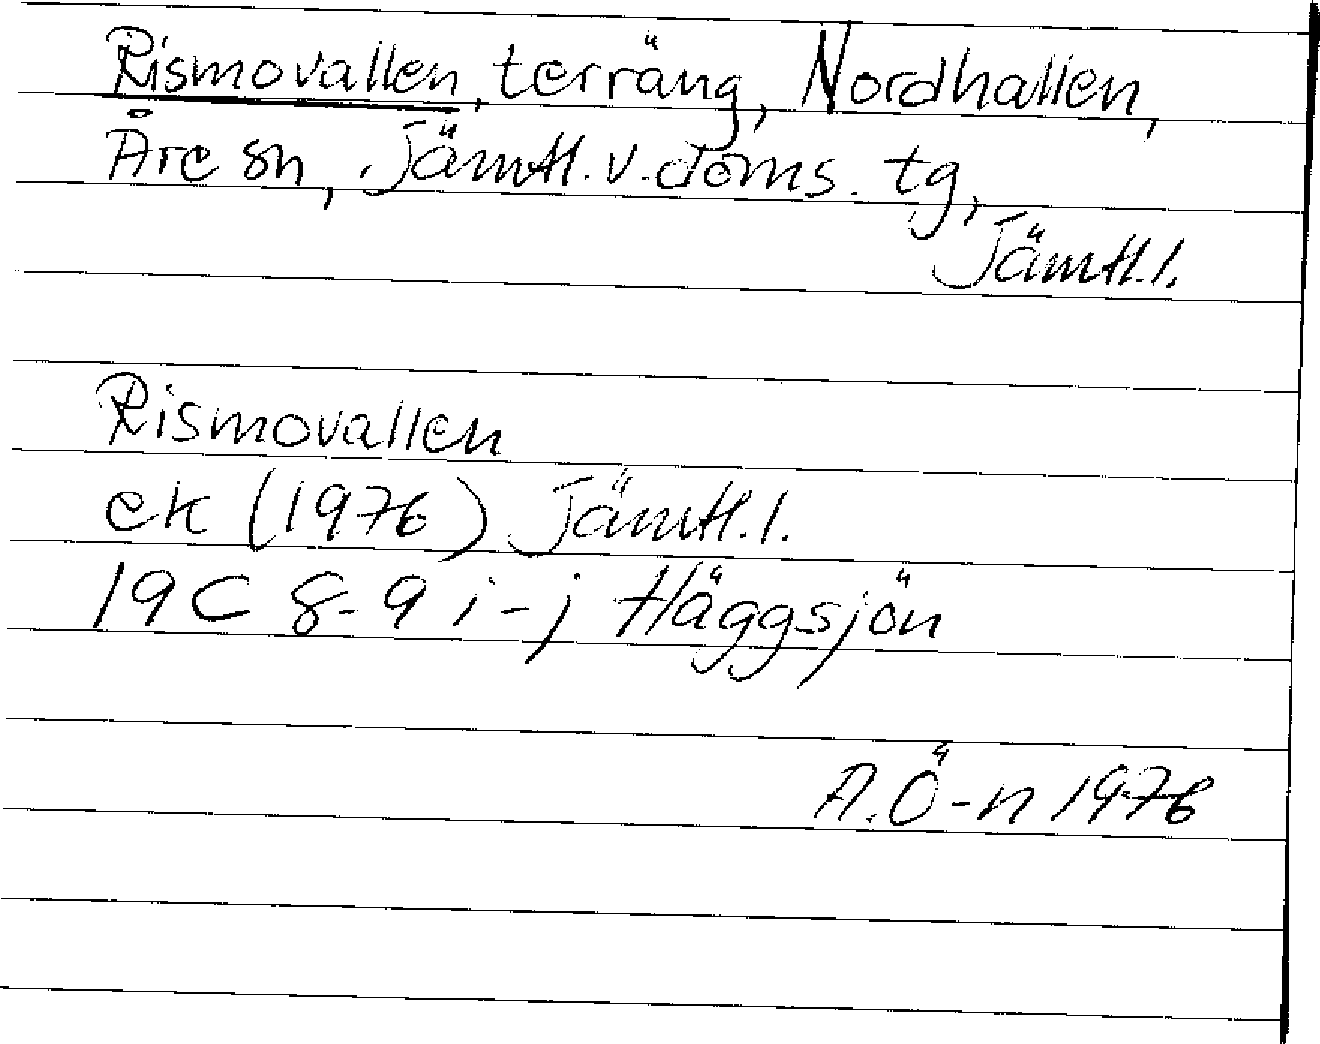 Rismovallen, terräng, Nordhallen,
Åre sn, Jämtl. v. doms. tg,
Jämtl. l.
Rismovallen
ek (1976) Jämtl. l.
19C 8-9 i-j Häggsjön
A. Ö-n 1976